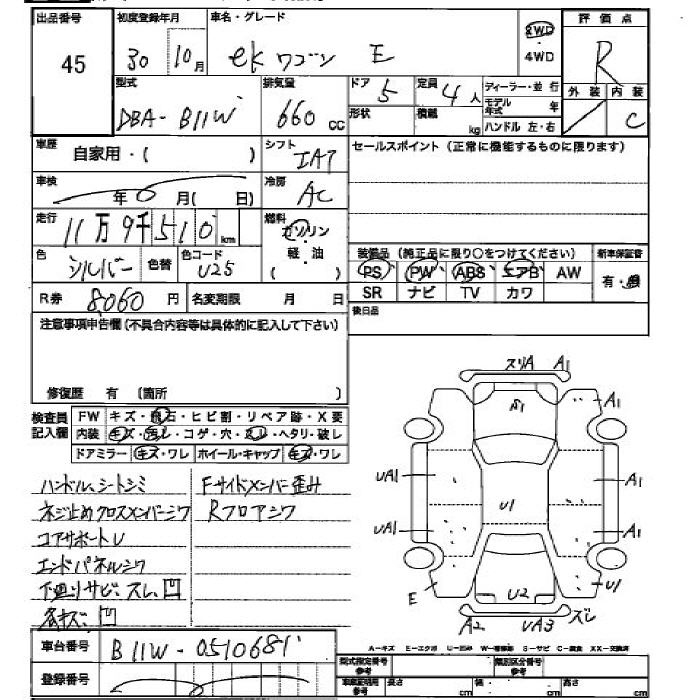 出品番号 初度登録年月 車名・グレード 評価点
45 30 10月 ekワゴン E 2WD ・ 4WD R
型式 排気量 ドア 定員 ディーラー・並行 外装 内装
DBA-B11W 660cc 5 4人 モデル年式 年 C
形状 積載 kg ハンドル 左・右
車歴 自家用・( ) シフト IAT セールスポイント(正常に機能するものに限ります)
車検 年6月( 日) 冷房 AC
走行 11万9千510km 燃料 ガソリン・軽油( )
装備品(純正品に限り○をつけてください) 新車保証書
色 シルバー 色替 色コード U25
PS PW ABS エアB AW 有・無
R券 8060円 名変期限 月 日 SR ナビ TV カワ
注意事項申告欄(不具合内容等は具体的に記入して下さい) 後日品
修復歴 有 (箇所 )
検査員記入欄 FW キズ・飛石・ヒビ割・リペア跡・X要
内装 キズ・汚レ・コゲ・穴・スレ・ヘタリ・破レ
ドアミラー キズ・ワレ ホイール・キャップ キズ・ワレ
ハンドル、シートシミ Fサイドメンバー歪み
ネジ止めクロスメンバーシワ Rフロアシワ
コアサポートU
エンドパネルシワ
下廻りサビ、スレ、凹
各キズ、凹
スリA A1
A1 A1
UA1 A1
U1
UA1 A1
E U2 U1
A2 UA3 ズレ
A-キズ E-エクボ U-凹み W-補修跡 S-サビ C-腐食 XX-交換済
車台番号 B11W-0510681
登録番号
型式指定番号 参考 類別区分番号 参考
車庫証明用 参考 長さ cm 幅 cm 高さ cm